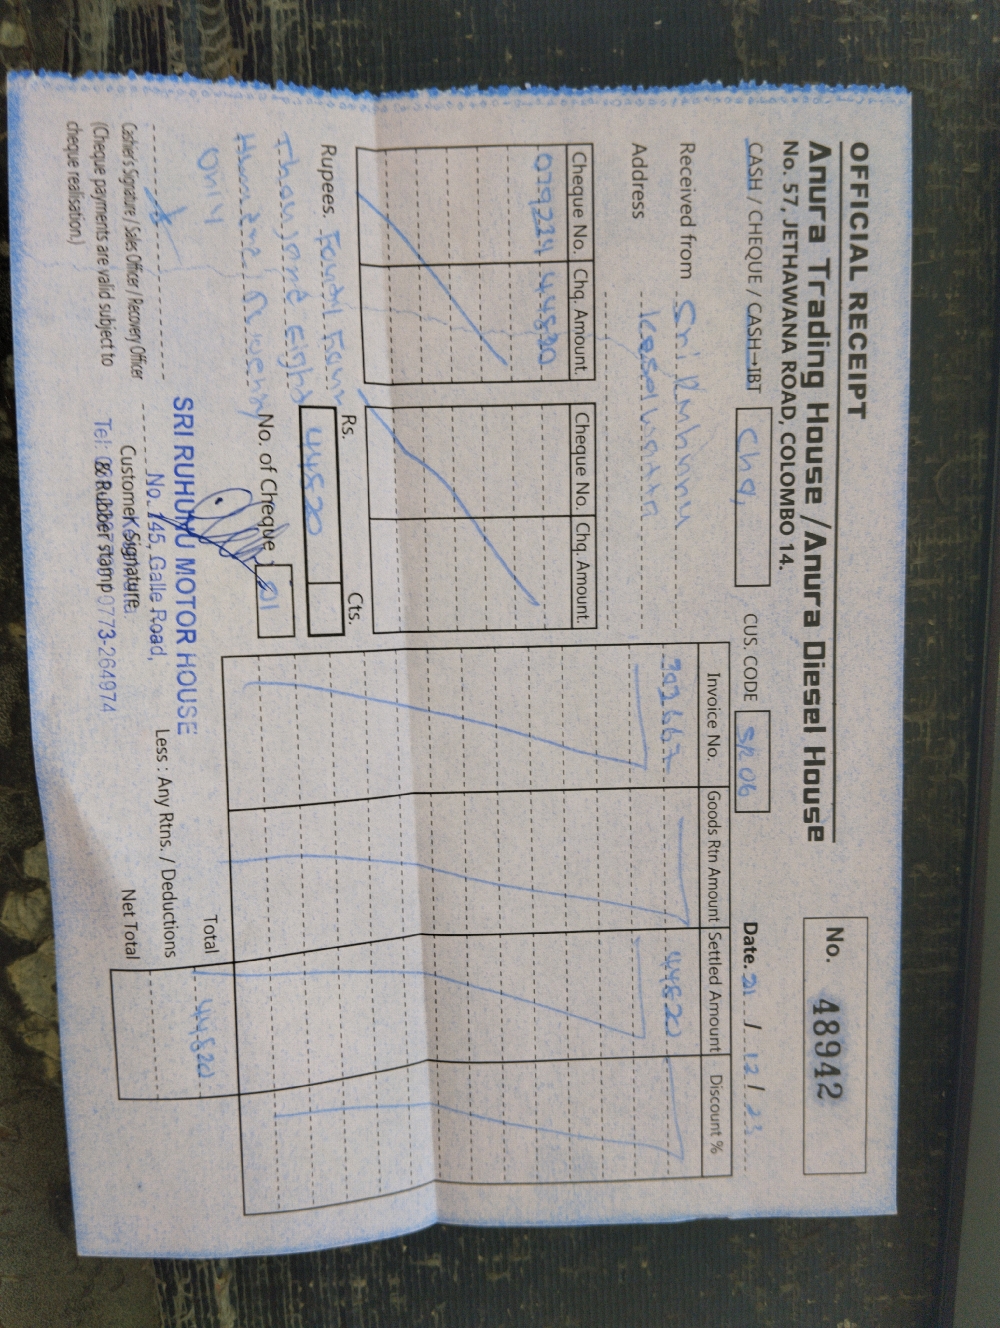 OFFICIAL RECEIPT
Anura Trading House / Anura Diesel House
No. 57, JETHAWANA ROAD, COLOMBO 14.
No. 48942
CASH / CHEQUE / CASH→IBT Chq,
CUS. CODE SR 06
Date. 21 / 12 / 23
Received from
Address
Cheque No. Chq. Amount. Cheque No. Chq. Amount.
079224 44820
Invoice No. Goods Rtn Amount Settled Amount Discount %
44820
Rupees. Fourty Four
Thousand Eight
Hundred Twenty
only
Rs. Cts.
44820
No. of Cheque 01
Total 44820
Less : Any Rtns. / Deductions
Net Total
SRI RUHUNU MOTOR HOUSE
No. 145, Galle Road,
0773-264974
Casher's Signature / Sales Officer / Recovery Officer
(Cheque payments are valid subject to
cheque realisation.)
Customer Signature
& Rubber stamp